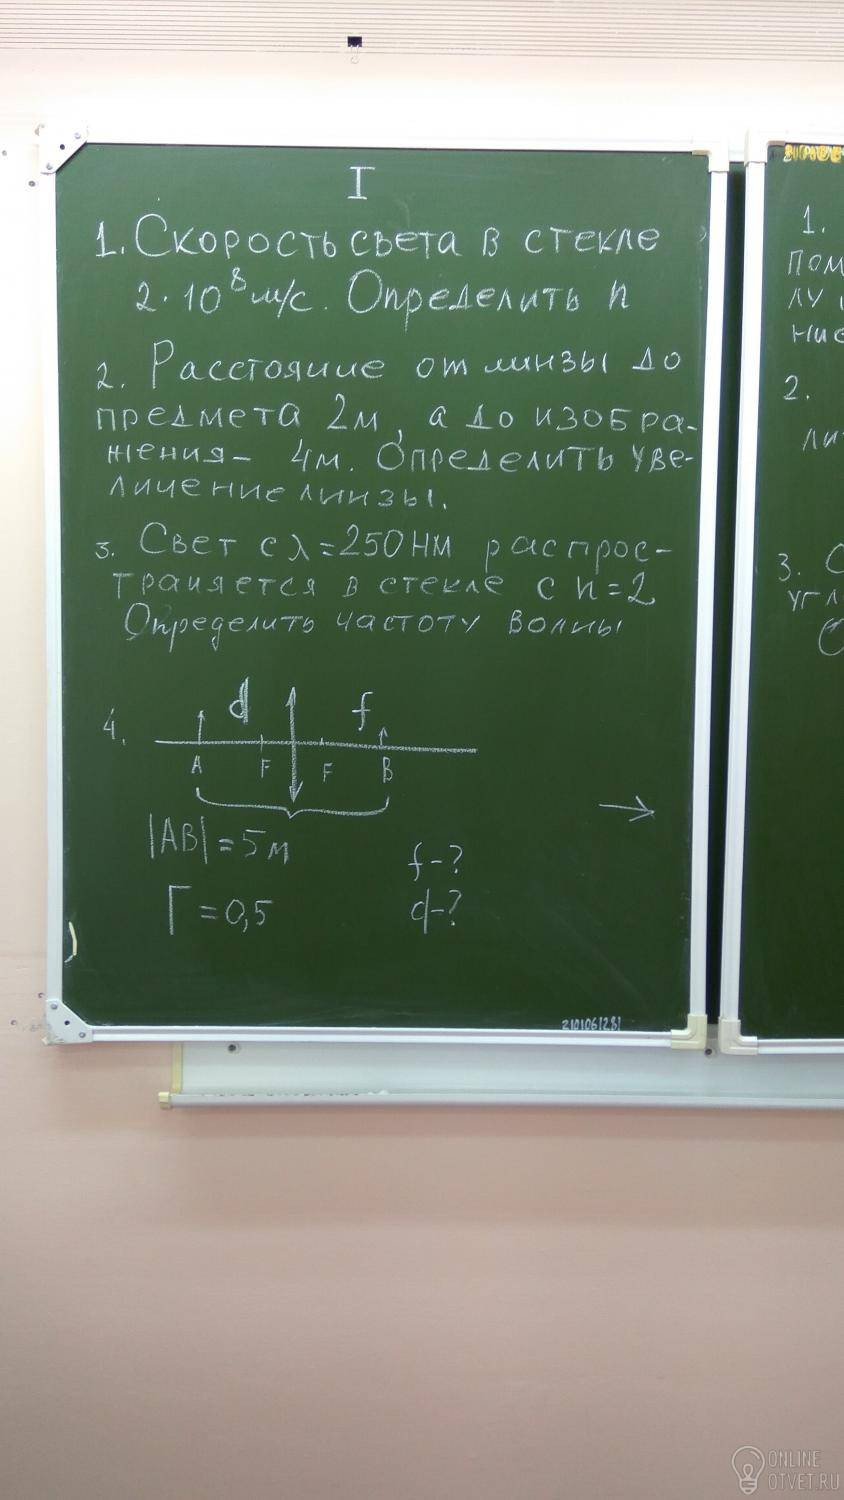 I
1. Скорость света в стекле
2·10⁸ м/с. Определить n
2. Расстояние от линзы до
предмета 2м, а до изобра-
жения - 4м. Определить уве-
личение линзы.
3. Свет с λ=250нм распрос-
траняется в стекле с n=2
Определить частоту волны
4.
d f
A F F B
|AB| = 5м
f-?
Г = 0,5
d-?
2101061281
1.
пом
лу
ние
2.
ли
3. С
угл
О
ONLINE
OTVET.RU